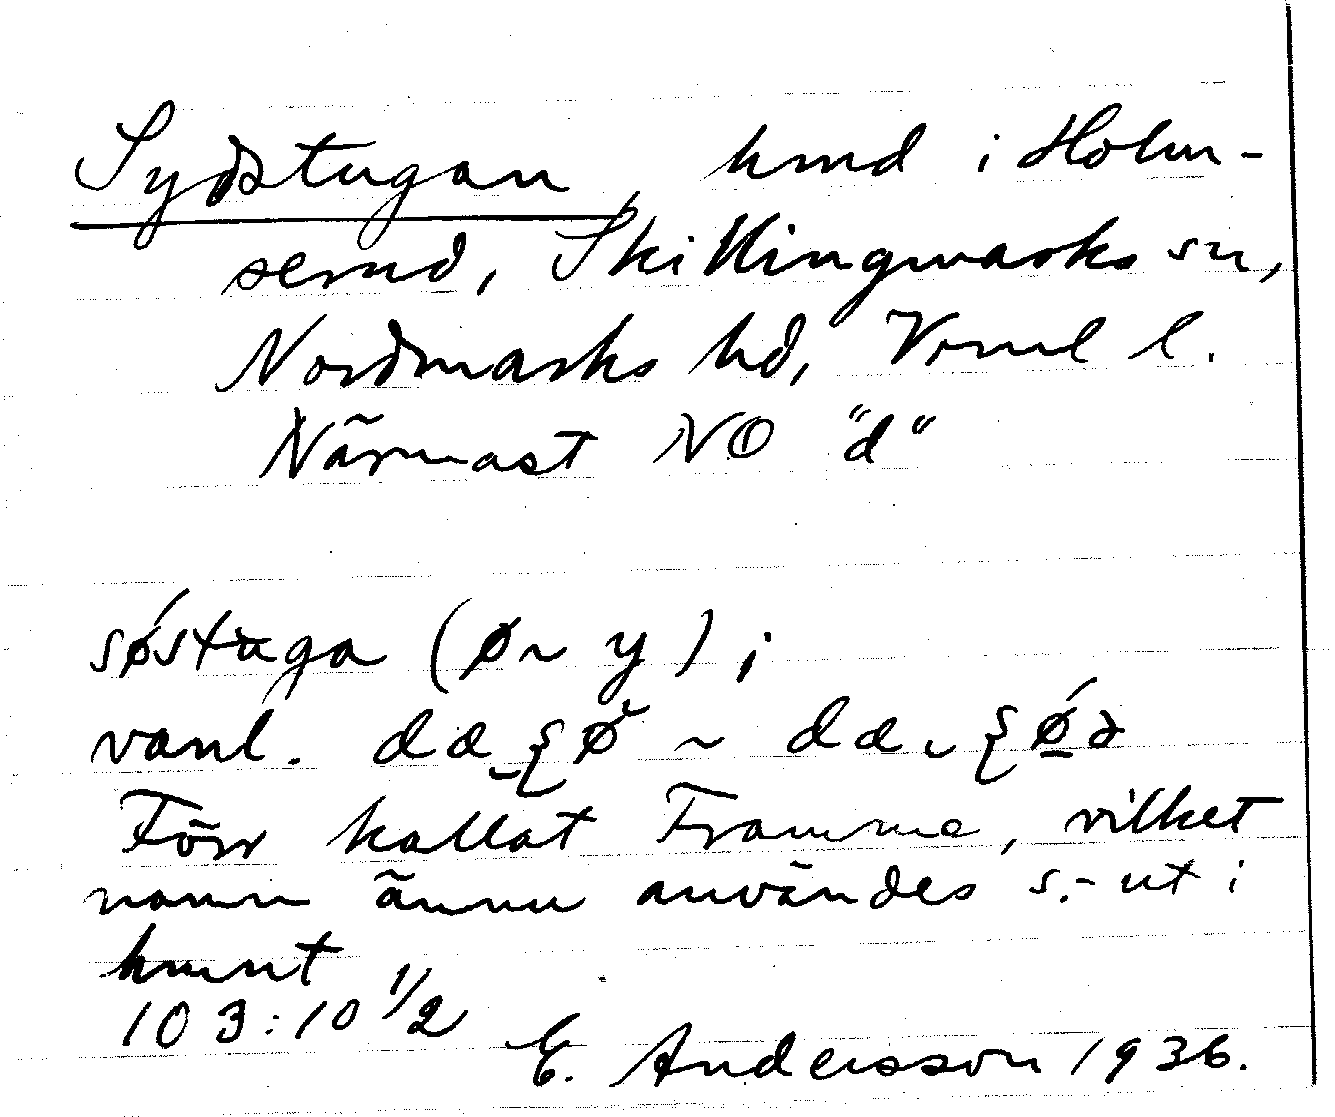 Sydstugan, hmd i Holm-
sernd, Skillingmarks sn,
Nordmarks hd, Vrml l.
Närmast NO "d"
søstuga (ø ~ y);
vanl. dæ ~ dæ
Förr kallat Framme, vilket
namn ännu användes s.- ut i
hmnt
103:10 1/2
E. Andersson 1936.